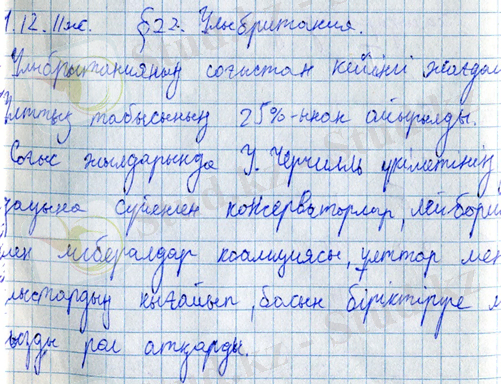 1.12. 11ж. §22. Ұлыбритания.
Ұлыбрытанияның соғыстан кейінгі жағдай
Ұлттық табысының 25%-ынан айырылды.
Соғыс жылдарында У. Черчилль үкіметінің
сүйенген консерваторлар, лейбори
мен либералдар коалициясы, ұлттар мен
қығайып, басын біріктіруге м
ызды рөл атқарды.